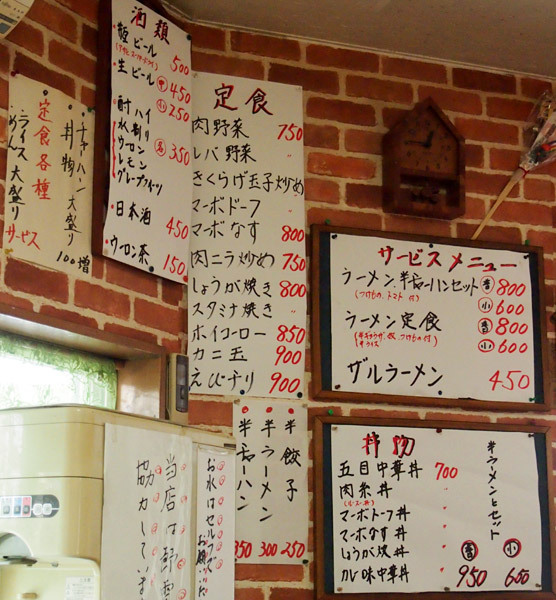 酒類
瓶ビール 500
生ビール 中 450
小 250
酎ハイ
水割り
ウーロン 各 350
レモン
グレープフルーツ
日本酒 450
ウーロン茶 150
チャーハン大盛り
丼物大盛り 100増
定食各種
・ライス大盛り
めん大盛り
サービス
定食
肉野菜 750
レバ野菜 〃
きくらげ玉子炒め
マーボドーフ 〃
マーボなす 800
肉ニラ炒め 750
しょうが焼き 800
スタミナ焼き 〃
ホイコーロー 850
カニ玉 900
えびチリ 900
半餃子 250
半ラーメン 300
半チャーハン 350
サービスメニュー
ラーメン.半チャーハンセット 普 800
(つけもの、トマト付) 小 600
ラーメン定食 普 800
小 600
ザルラーメン 450
丼物
五目中華丼 700
肉糸丼 〃
マーボトーフ丼 〃
マーボなす丼 〃
しょうが焼丼 〃
カレー味中華丼 〃
半ラーメンとセット
普 950
小 600
お水はセルフで
お願い
当店は
協力していま